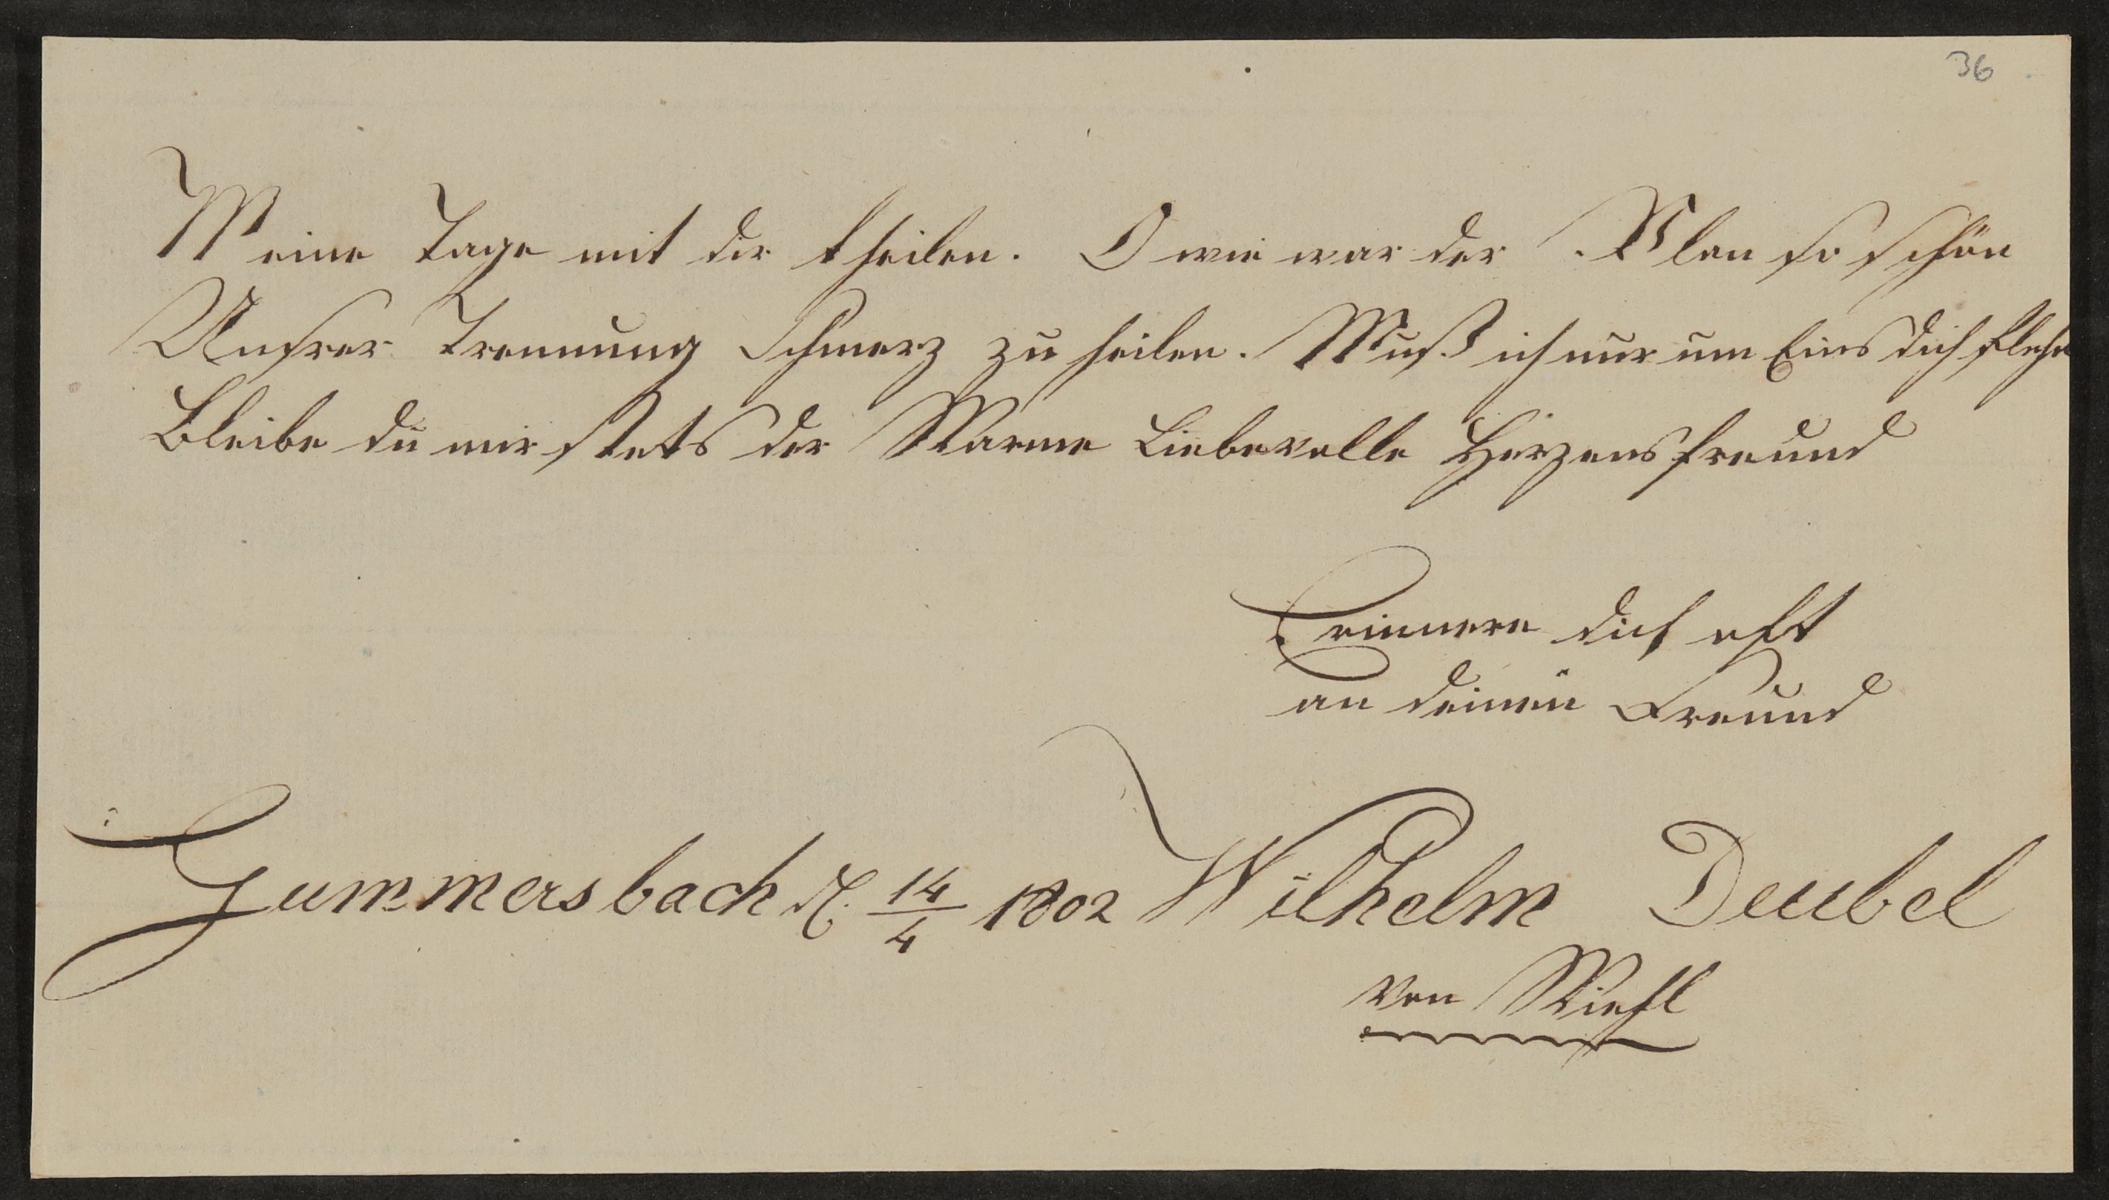 36
Meine Tage mit dir theilen. O wie war der Plan so schön
Unsrer Trennung Schmerz zu heilen. Muß ich nur um Eins dich flehn
Bleibe du mir stets der Warme Liebevolle Herzensfreund
Erinnere dich oft
an deinen Freund
Gummersbach d. 14/4 1802 Wilhelm Deubel
von Wiehl